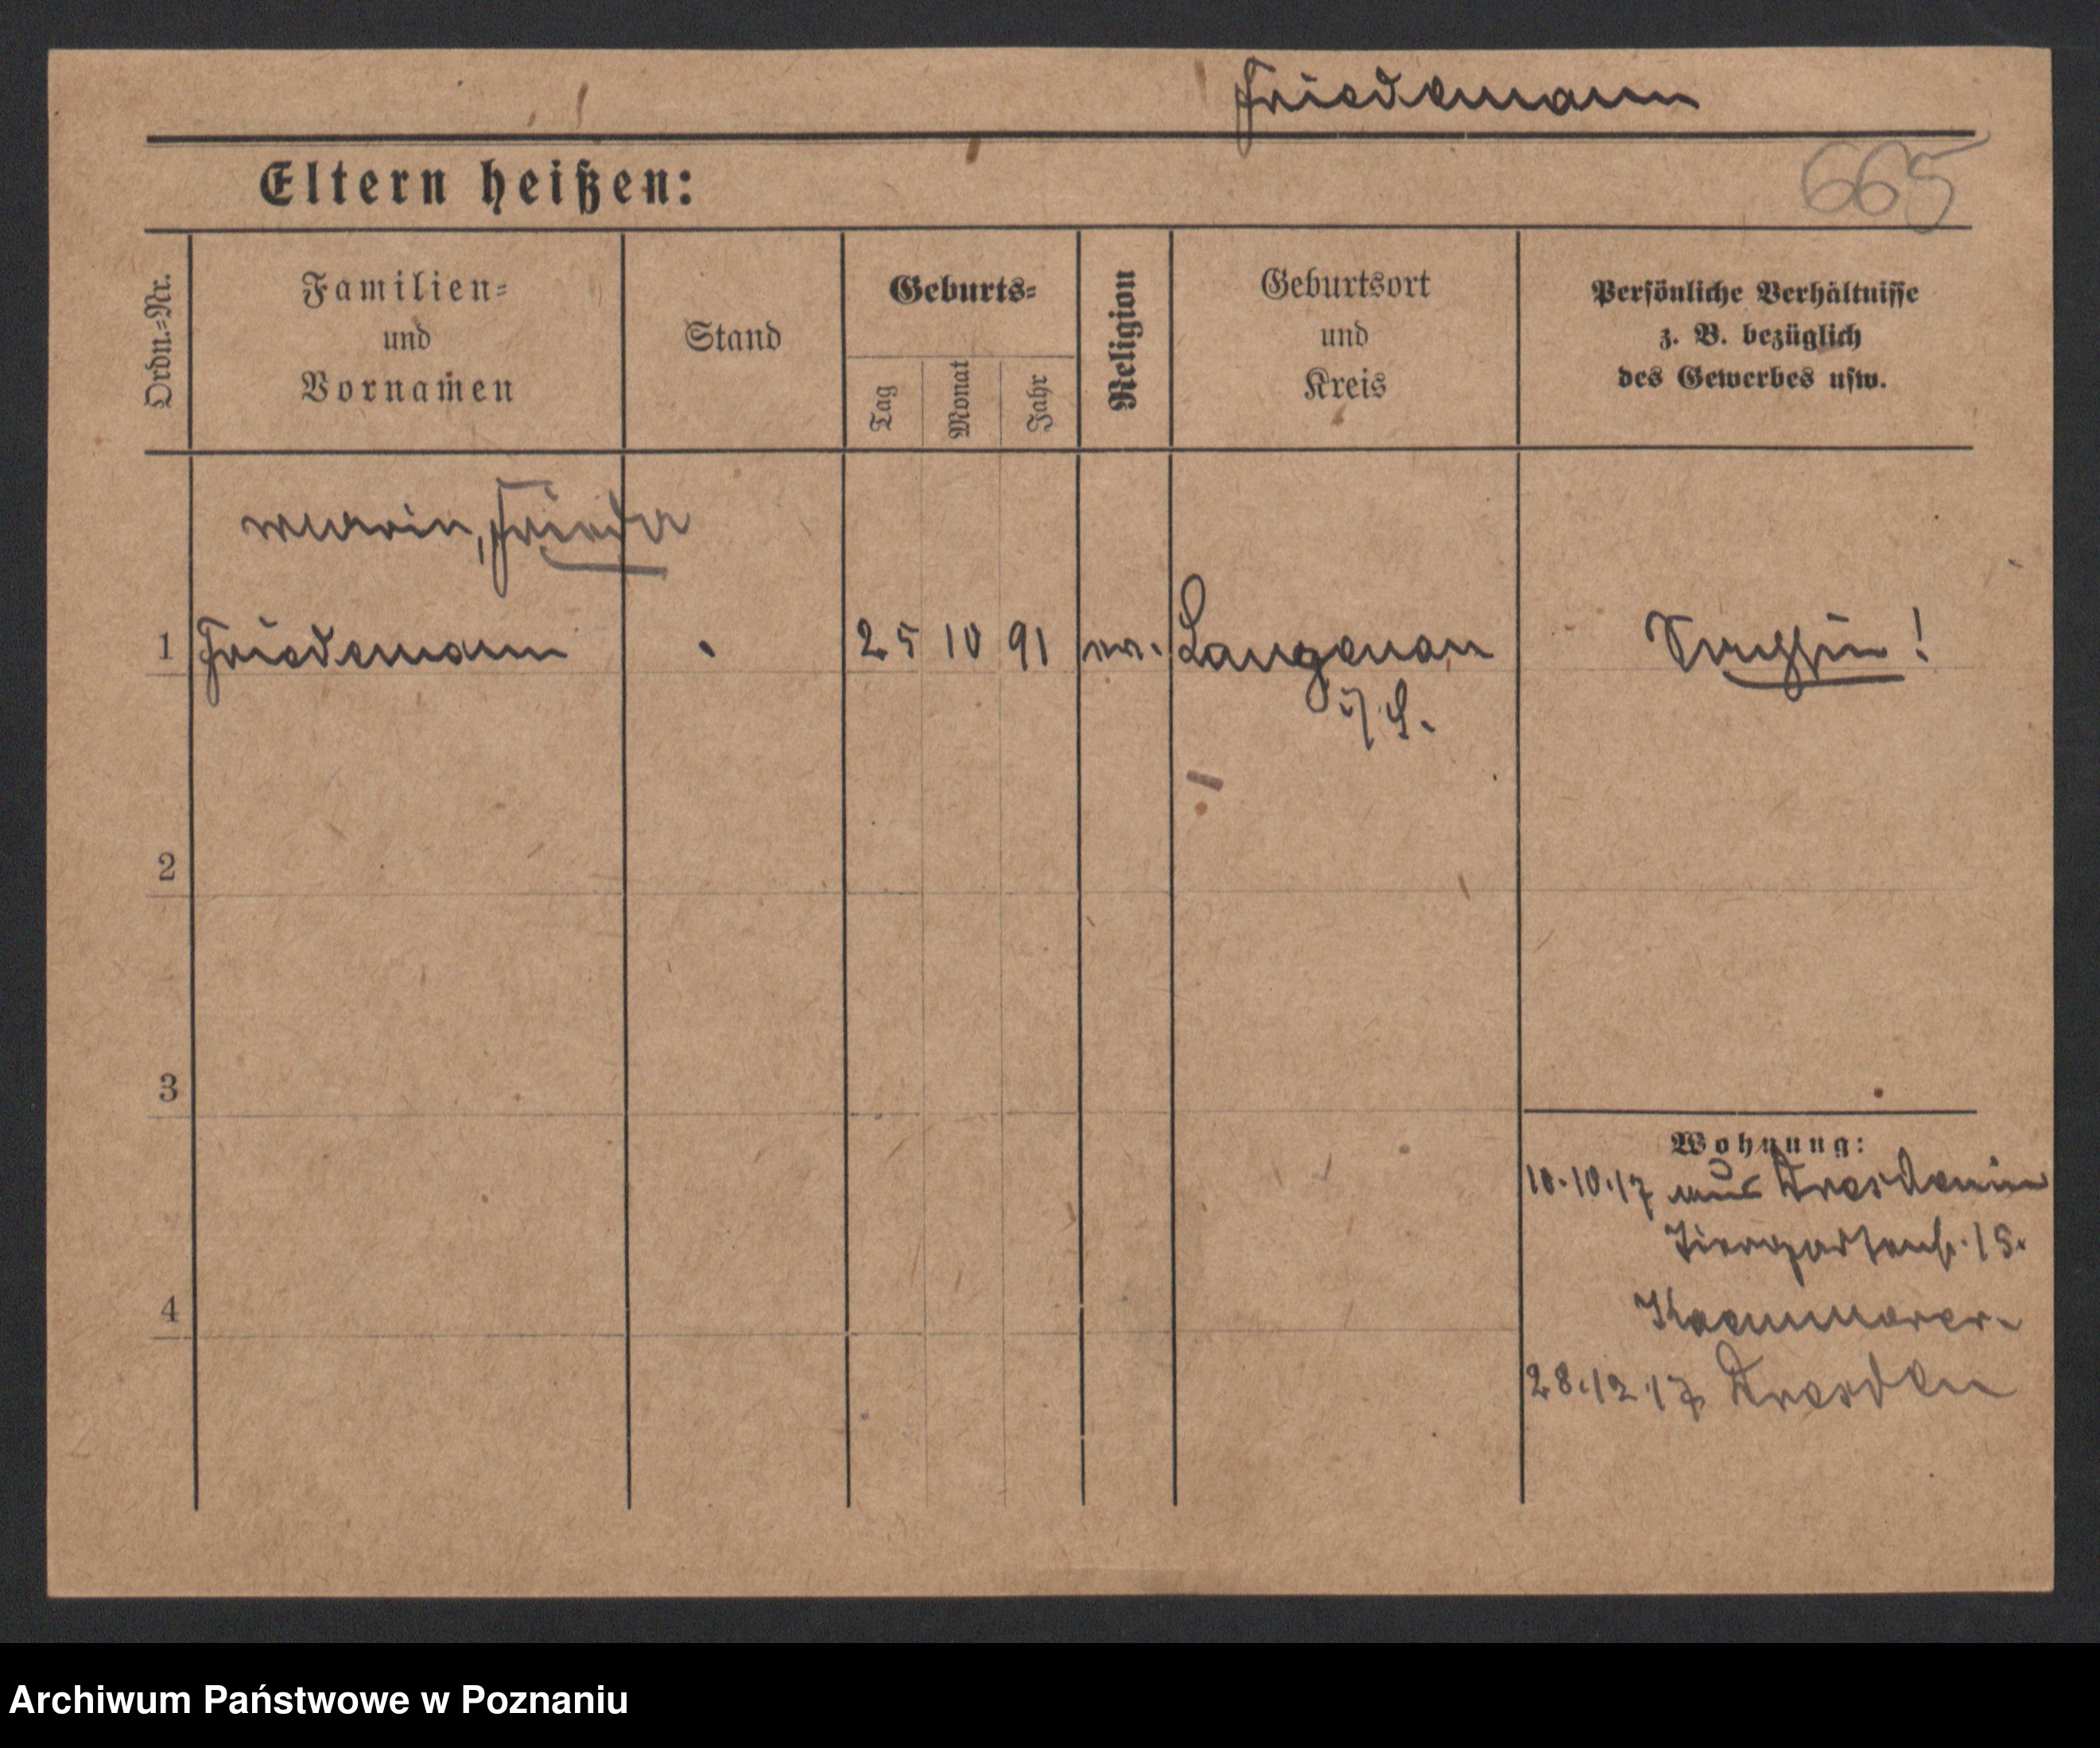 Friedemann
665
Eltern heißen:
Ordn.=Nr.
Familien=
und
Vornamen
Stand
Geburts=
Tag
Monat
Jahr
Religion
Geburtsort
und
Kreis
Persönliche Verhältnisse
z. B. bezüglich
des Gewerbes usw.
Frieda
1 Friedemann 25 10 91 ev. Langenau
i/S.
2
3
4
Wohnung:
10.10.17 aus Dresden
Tiergartenstr. 15.
Kaemmerer.
28.12.17 Dresden
Archiwum Państwowe w Poznaniu